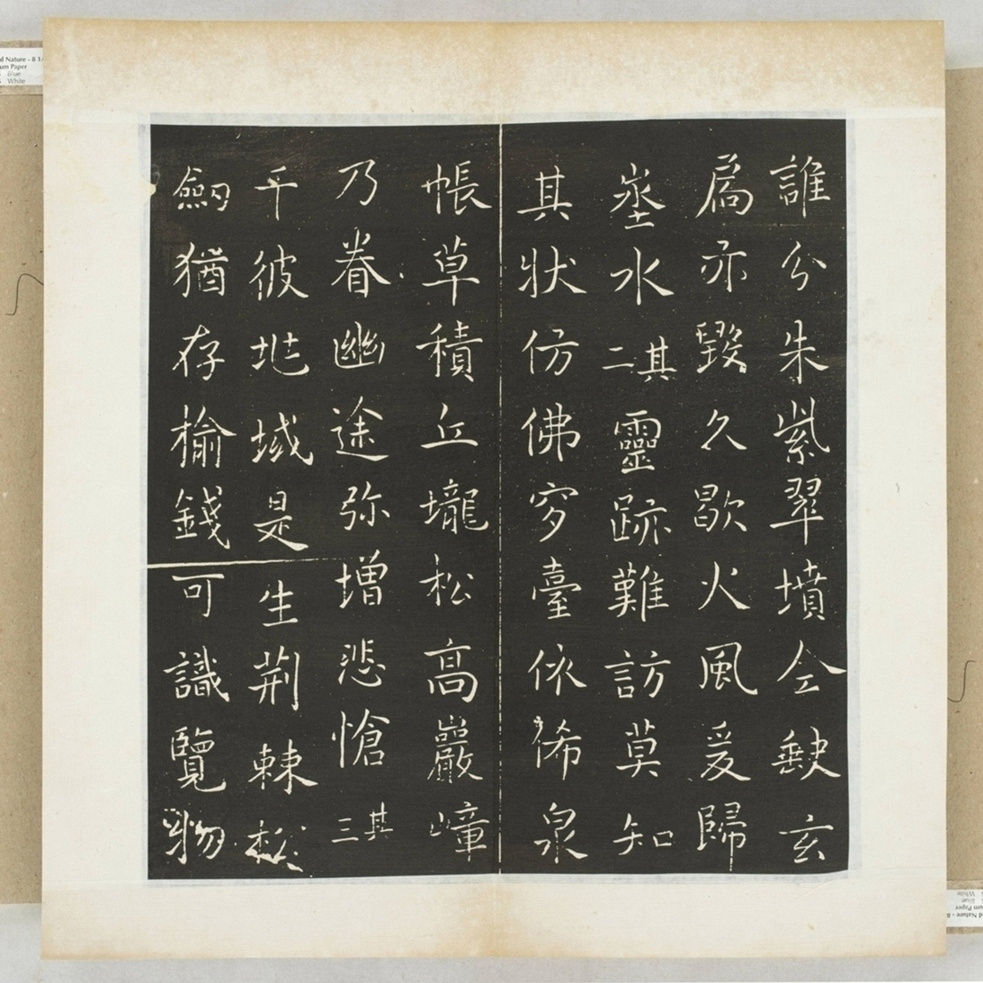 誰分朱紫翠墳仝缺玄
扃亦毀久歇火風爰歸
埊水其二靈跡難訪莫知
其狀仿佛穸臺依俙泉
帳草積丘壠松高巖嶂
乃眷幽途弥增悲愴其三
于彼地域是生荆棘松
劒猶存榆錢可識覽物
d Nature - 8 1
um Paper
Blue
White